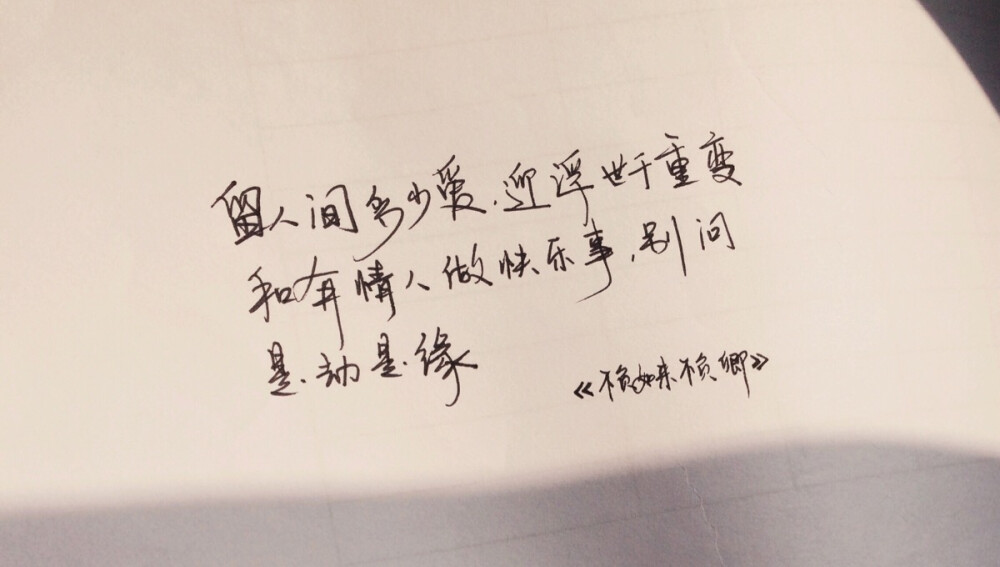 留人间多少爱，迎浮世千重变
和有情人做快乐事，别问
是劫是缘
《不负如来不负卿》